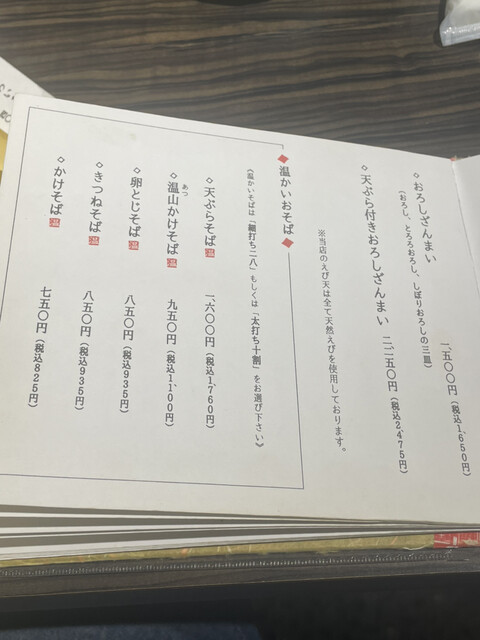 ◇おろしざんまい 一、五〇〇円(税込1,650円)
(おろし、とろろおろし、しぼりおろしの三皿)
◇天ぷら付きおろしざんまい 二、二五〇円(税込2,475円)
※当店のえび天は全て天然えびを使用しております。
◆温かいおそば◆
《温かいそばは「細打ち二八」もしくは「太打ち十割」をお選び下さい》
◇天ぷらそば温 一、六〇〇円(税込1,760円)
◇温山かけそば温 九五〇円(税込1,100円)
あつ
◇卵とじそば温 八五〇円(税込935円)
◇きつねそば温 八五〇円(税込935円)
◇かけそば温 七五〇円(税込825円)